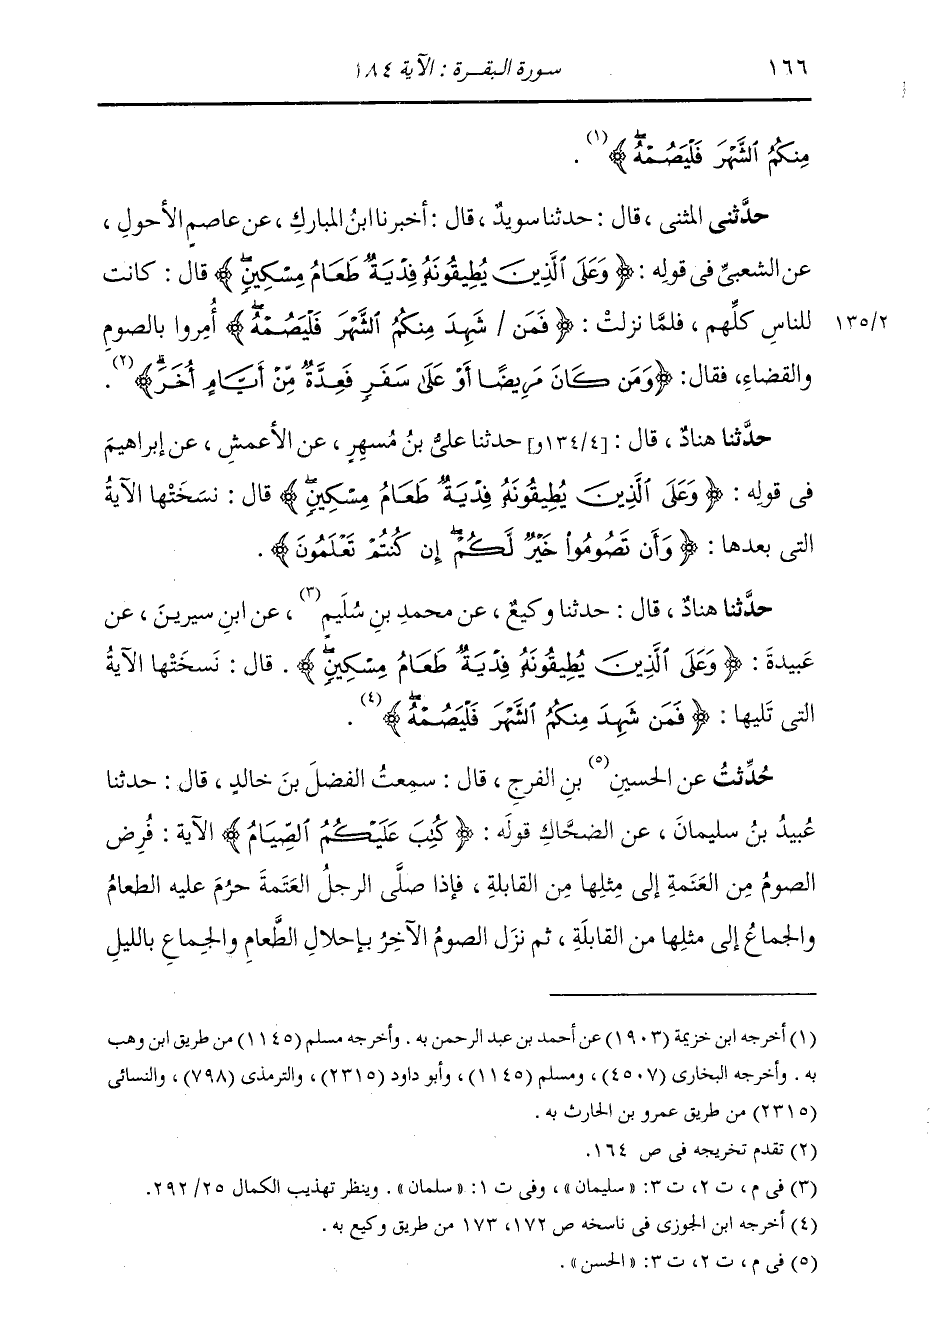 ١٦٦ سورة البقرة : الآية ١٨٤
مِنكُمُ ٱلشَّهْرَ فَلْيَصُمْهُۖ ﴾ (١) .
حدَّثنى المثنى ، قال : حدثنا سويدٌ ، قال : أخبرنا ابنُ المباركِ ، عن عاصمٍ الأحولِ ،
عن الشعبىِّ فى قولِه : ﴿ وَعَلَى ٱلَّذِينَ يُطِيقُونَهُۥ فِدْيَةٌ طَعَامُ مِسْكِينٍۖ ﴾ قال : كانت
للناسِ كلِّهم ، فلمَّا نزلتْ : ﴿ فَمَن / شَهِدَ مِنكُمُ ٱلشَّهْرَ فَلْيَصُمْهُۖ ﴾ أُمِروا بالصومِ ١٣٥/٢
والقضاءِ، فقال: ﴿وَمَن كَانَ مَرِيضًا أَوْ عَلَىٰ سَفَرٍ فَعِدَّةٌ مِّنْ أَيَّامٍ أُخَرَۗ﴾ (٢) .
حدَّثنا هنادٌ ، قال : [١٣٤/٤و] حدثنا علىُّ بنُ مُسهِرٍ ، عن الأعمشِ ، عن إبراهيمَ
فى قولِه : ﴿ وَعَلَى ٱلَّذِينَ يُطِيقُونَهُۥ فِدْيَةٌ طَعَامُ مِسْكِينٍۖ ﴾ قال : نسَخَتْها الآيةُ
التى بعدها : ﴿ وَأَن تَصُومُوا۟ خَيْرٌ لَّكُمْۖ إِن كُنتُمْ تَعْلَمُونَ ﴾ .
حدَّثنا هنادٌ ، قال : حدثنا وكيعٌ ، عن محمدِ بنِ سُلَيمٍ (٣) ، عن ابنِ سيرينَ ، عن
عَبيدةَ : ﴿ وَعَلَى ٱلَّذِينَ يُطِيقُونَهُۥ فِدْيَةٌ طَعَامُ مِسْكِينٍۖ ﴾ . قال : نَسخَتْها الآيةُ
التى تَليها : ﴿ فَمَن شَهِدَ مِنكُمُ ٱلشَّهْرَ فَلْيَصُمْهُۖ ﴾ (٤) .
حُدِّثتُ عن الحسينِ (٥) بنِ الفرجِ ، قال : سمِعتُ الفضلَ بنَ خالدٍ ، قال : حدثنا
عُبيدُ بنُ سليمانَ ، عن الضحَّاكِ قولَه : ﴿ كُتِبَ عَلَيْكُمُ ٱلصِّيَامُ ﴾ الآية : فُرِض
الصومُ مِن العَتَمةِ إلى مِثلِها مِن القابلةِ ، فإذا صلَّى الرجلُ العَتَمةَ حرُمَ عليه الطعامُ
والجماعُ إلى مثلِها من القابلَةِ ، ثم نزَل الصومُ الآخِرُ بإحلالِ الطَّعامِ والجِماعِ بالليلِ
(١) أخرجه ابن خزيمة (١٩٠٣) عن أحمد بن عبد الرحمن به . وأخرجه مسلم (١١٤٥) من طريق ابن وهب
به . وأخرجه البخارى (٤٥٠٧) ، ومسلم (١١٤٥) ، وأبو داود (٢٣١٥) ، والترمذى (٧٩٨) ، والنسائى
(٢٣١٥) من طريق عمرو بن الحارث به .
(٢) تقدم تخريجه فى ص ١٦٤.
(٣) فى م ، ت ٢، ت ٣: «سليمان» ، وفى ت ١: «سلمان» . وينظر تهذيب الكمال ٢٥/ ٢٩٢.
(٤) أخرجه ابن الجوزى فى ناسخه ص ١٧٢، ١٧٣ من طريق وكيع به .
(٥) فى م ، ت ٢، ت ٣: «الحسن» .